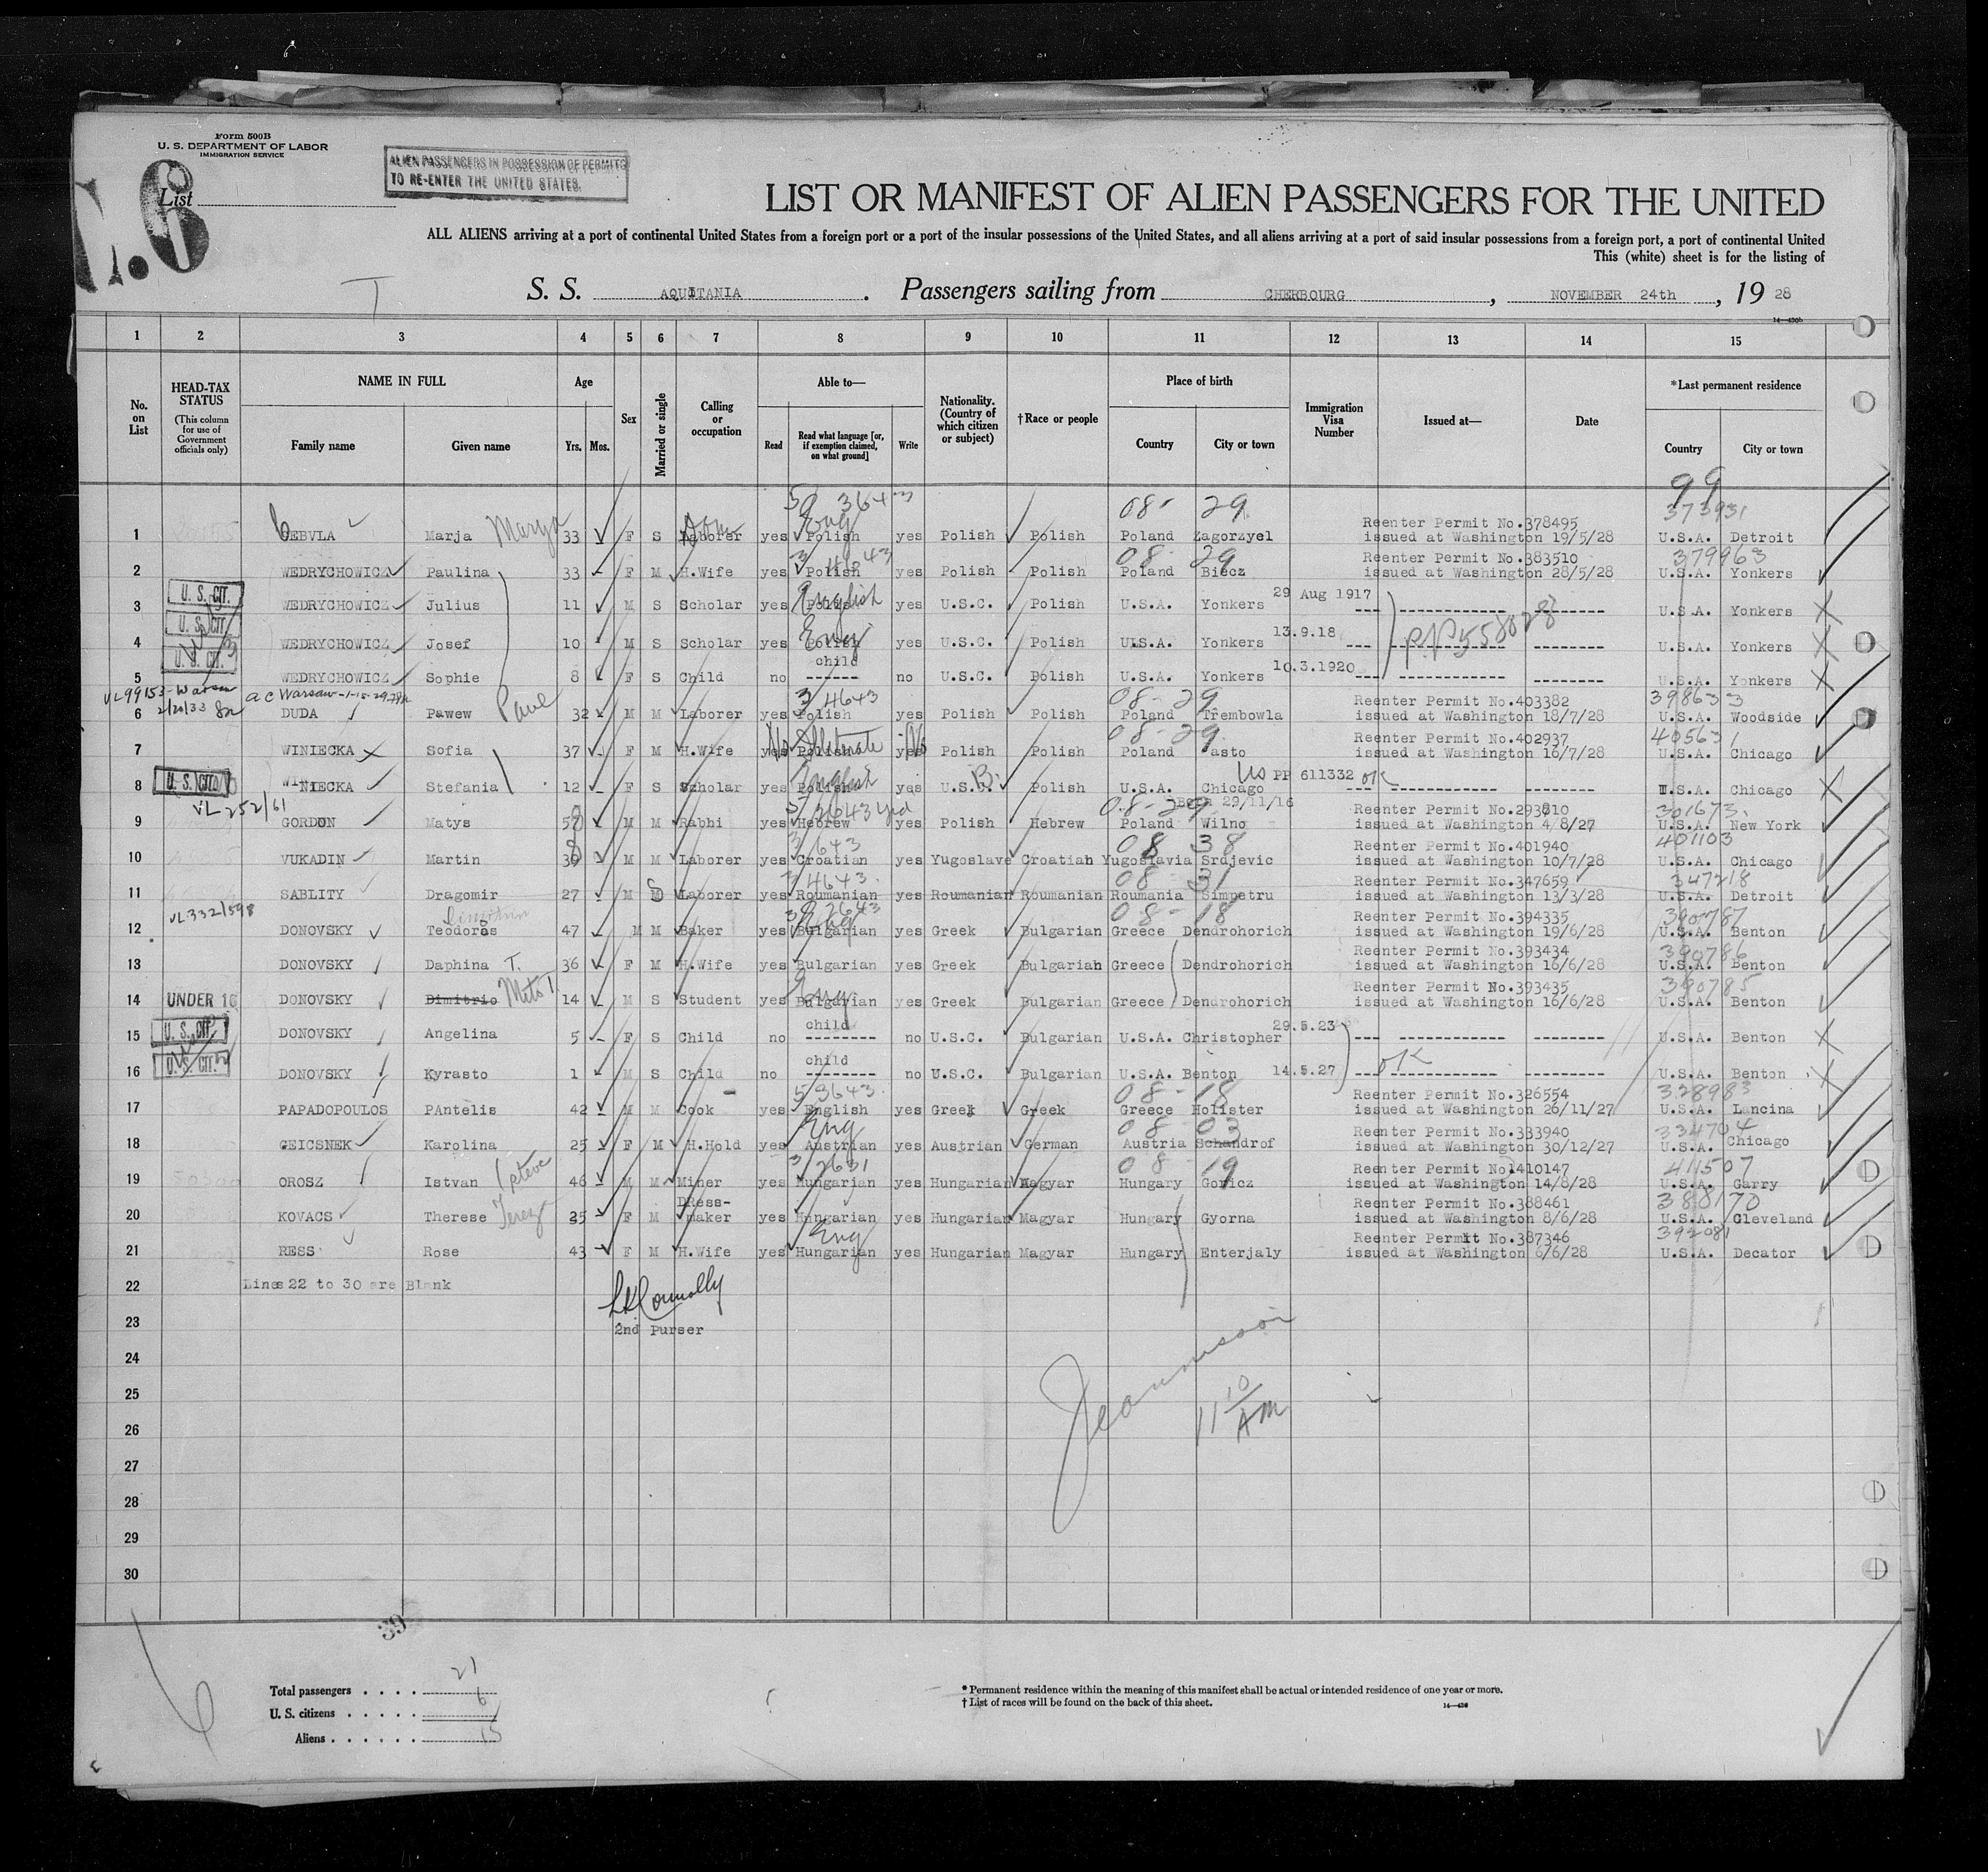 Form 500B
U. S. DEPARTMENT OF LABOR
IMMIGRATION SERVICE
List
ALIEN PASSENGERS IN POSSESSION OF PERMITS
TO RE-ENTER THE UNITED STATES.
LIST OR MANIFEST OF ALIEN PASSENGERS FOR THE UNITED
ALL ALIENS arriving at a port of continental United States from a foreign port or a port of the insular possessions of the United States, and all aliens arriving at a port of said insular possessions from a foreign port, a port of continental United
This (white) sheet is for the listing of
S. S. AQUITANIA . Passengers sailing from CHERBOURG , NOVEMBER 24th , 19 28
1 2 3 4 5 6 7 8 9 10 11 12 13 14 15
No. on List
HEAD-TAX STATUS
(This column for use of Government officials only)
NAME IN FULL
Family name Given name
Age
Yrs. Mos.
Sex
Married or single
Calling or occupation
Able to—
Read Read what language [or, if exemption claimed, on what ground] Write
Nationality. (Country of which citizen or subject)
† Race or people
Place of birth
Country City or town
Immigration Visa Number
Issued at—
Date
*Last permanent residence
Country City or town
99
08- 29 373931
Reenter Permit No.378495
1 CEBVLA Marja Marya 33 F S Laborer yes Polish Eng yes Polish Polish Poland Zagorzyel issued at Washington 19/5/28 U.S.A. Detroit
08- 29 Reenter Permit No.383510 379963
2 WEDRYCHOWICZ Paulina 33 F M H.Wife yes Polish yes Polish Polish Poland Biecz issued at Washington 28/5/28 U.S.A. Yonkers
3 U. S. CIT. WEDRYCHOWICZ Julius 11 M S Scholar yes Polish English yes U.S.C. Polish U.S.A. Yonkers 29 Aug 1917 U.S.A. Yonkers
4 U. S. CIT. WEDRYCHOWICZ Josef 10 M S Scholar yes Polish Eng yes U.S.C. Polish U.S.A. Yonkers 13.9.18 PP 558028 U.S.A. Yonkers
child
5 U. S. CIT. WEDRYCHOWICZ Sophie 8 F S Child no no U.S.C. Polish U.S.A. Yonkers 10.3.1920 U.S.A. Yonkers
VL99153-Warsaw
2/20/33
3 4643 08-29 Reenter Permit No.403382 398633
6 DUDA Pawew Paul 32 M M Laborer yes Polish yes Polish Polish Poland Trembowla issued at Washington 18/7/28 U.S.A. Woodside
08-29 Reenter Permit No.402937 405631
7 WINIECKA Sofia 37 F M H.Wife yes No Polish Illiterate yes No Polish Polish Poland Pasto issued at Washington 16/7/28 U.S.A. Chicago
8 U. S. CIT. WINIECKA Stefania 12 F S Scholar yes Polish English yes U.S.C. Polish U.S.A. Chicago US PP 611332 OK U.S.A. Chicago
VL 252/61
08-29 Born 29/11/16 Reenter Permit No.293810 301673
9 GORDON Matys 58 M M Rabbi yes Hebrew yes Polish Hebrew Poland Wilno issued at Washington 4/8/27 U.S.A. New York
08 38 Reenter Permit No.401940 401103
10 VUKADIN Martin 39 M M Laborer yes Croatian yes Yugoslave Croatian Yugoslavia Srdjevic issued at Washington 10/7/28 U.S.A. Chicago
3 4643 08 31 Reenter Permit No.347659 347218
11 SABLITY Dragomir 27 M S Laborer yes Roumanian yes Roumanian Roumanian Roumania Simpetru issued at Washington 13/3/28 U.S.A. Detroit
VL332/598
08-18 Reenter Permit No.394335 390787
12 DONOVSKY Teodoras 47 M M Baker yes Bulgarian Eng yes Greek Bulgarian Greece Dendrohorich issued at Washington 19/6/28 U.S.A. Benton
Reenter Permit No.393434 390786
13 DONOVSKY Daphina T. 36 F M H.Wife yes Bulgarian yes Greek Bulgarian Greece Dendrohorich issued at Washington 16/6/28 U.S.A. Benton
Reenter Permit No.393435 390785
14 UNDER 16 DONOVSKY Dimitrio Mito T. 14 M S Student yes Bulgarian Eng yes Greek Bulgarian Greece Dendrohorich issued at Washington 16/6/28 U.S.A. Benton
child
15 U. S. CIT. DONOVSKY Angelina 5 F S Child no no U.S.C. Bulgarian U.S.A. Christopher 29.5.23 U.S.A. Benton
child
16 U. S. CIT. DONOVSKY Kyrasto 1 M S Child no no U.S.C. Bulgarian U.S.A. Benton 14.5.27 OK U.S.A. Benton
53643 08-18 Reenter Permit No.326554 328983
17 PAPADOPOULOS PAntelis 42 M M Cook yes English yes Greek Greek Greece Holister issued at Washington 26/11/27 U.S.A. Lancina
08-03 Reenter Permit No.333940 334704
18 GEICSNEK Karolina 25 F M H.Hold yes Austrian Eng yes Austrian German Austria Schandrof issued at Washington 30/12/27 U.S.A. Chicago
3 2631 08 19 Reenter Permit No.410147 411507
19 OROSZ Istvan Steve 46 M M Miner yes Hungarian yes Hungarian Magyar Hungary Goricz issued at Washington 14/8/28 U.S.A. Garry
Reenter Permit No.388461 388170
20 KOVACS Therese Tereza 25 F M DRess-maker yes Hungarian yes Hungarian Magyar Hungary Gyorna issued at Washington 8/6/28 U.S.A. Cleveland
Reenter Permit No.387346 392081
21 RESS Rose 43 F M H.Wife yes Hungarian Eng yes Hungarian Magyar Hungary Enterjaly issued at Washington 6/6/28 U.S.A. Decator
22 Lines 22 to 30 are Blank
23 2nd Purser
24
25
26
27
28
29
30
11 10 AM
39
Total passengers . . . . 21
U. S. citizens . . . . . 6
Aliens . . . . . . 15
* Permanent residence within the meaning of this manifest shall be actual or intended residence of one year or more.
† List of races will be found on the back of this sheet.